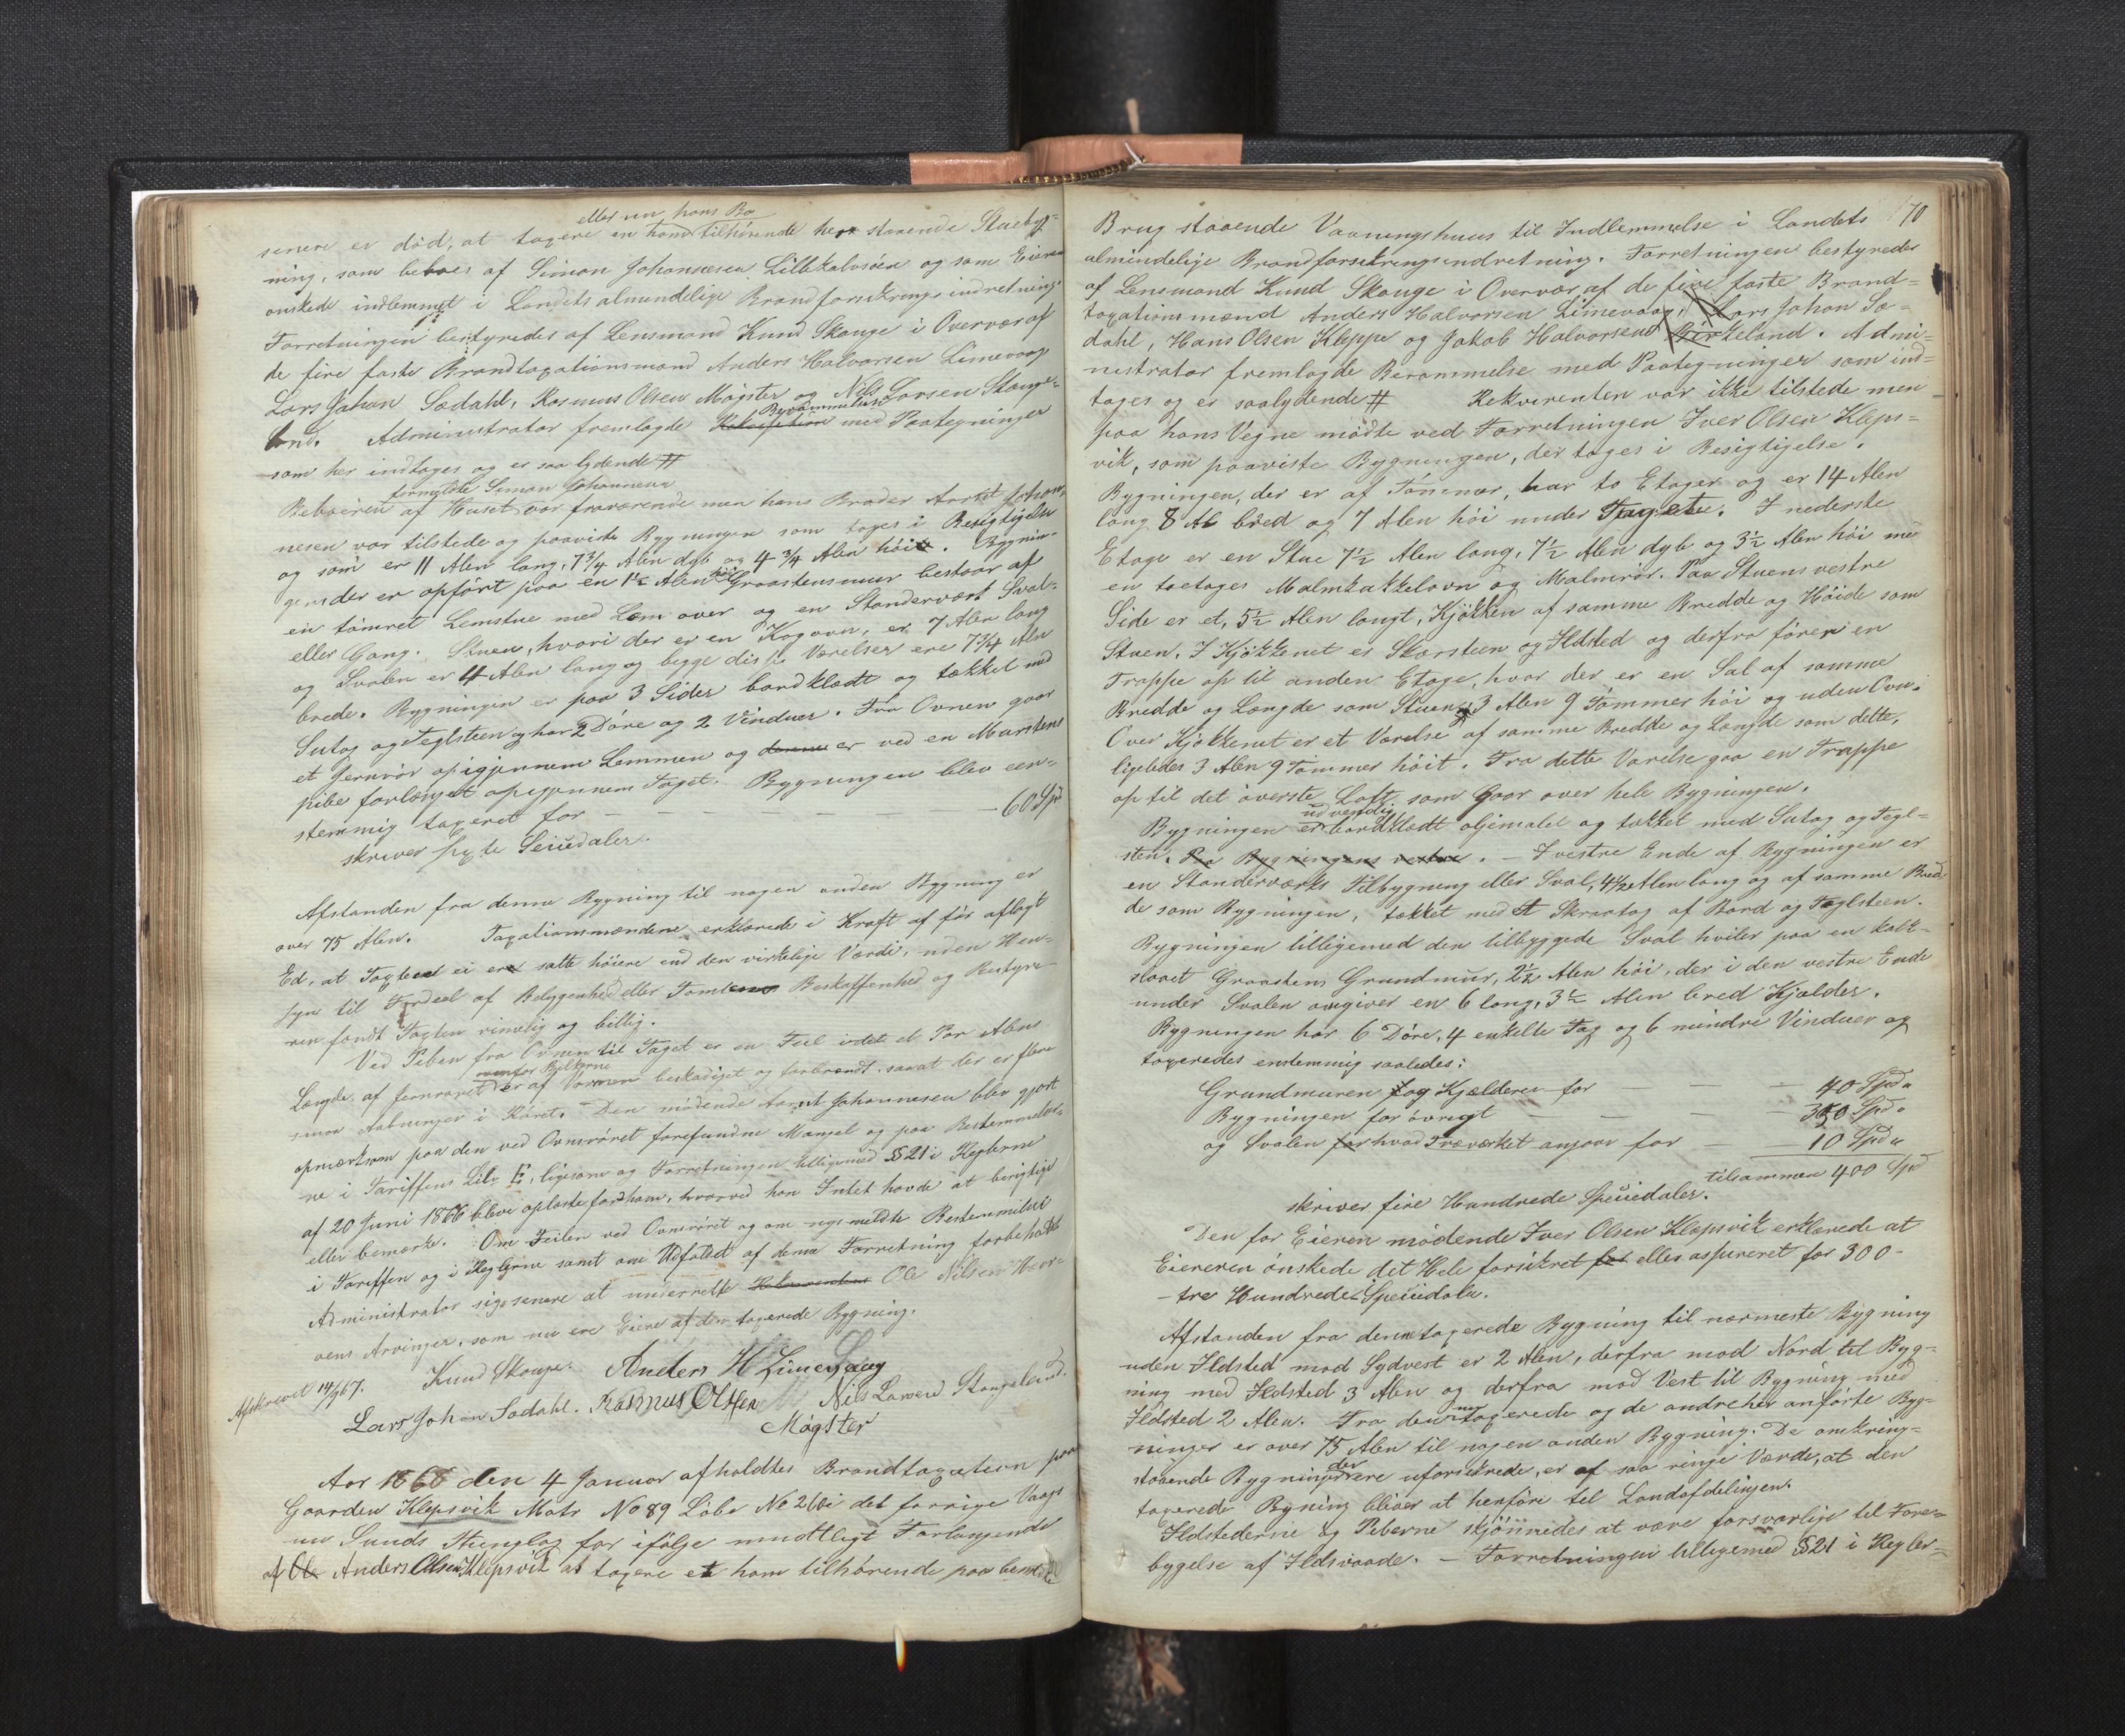 eller nu hans Bo
senere er död, at taxere en ham tilhörende her staaende Stuebyg-
ning, som beboes af Simon Johannesen Lillekalvsöen og som Eieren
önskede indlemmet i Landets almindelige Brandforsikringsindretning.
Forretningen bestyredes af Lensmand Knud Skauge i Overvær af
de fire faste Brandtaxationsmænd Anders Halvorsen Limevaag
Lars Johan Sædahl, Rasmus Olsen Mögster og Nils Larsen Stange-
land. Administrator fremlagde Berammelsen med Paategninger
som her indtages og er saa lydende #
formeldte Simon Johannesen
Beboeren af Huset var fraværende men hans Broder Aarnt Johan-
nesen var tilstede og paaviste Bygningen som toges i Besigtigelse
og som er 11 Alen lang, 7¾ Alen dyb og 4¾ Alen höi. Bygnin-
gen der er opfört paa en 1½ Alen höi Graasteensmuur bestaar af
en tömret Lemstue med Lem over og en Standerværk Sval-
eller Gang. Stuen, hvori der er en Kogovn, er 7 Alen lang
og Svalen er 4 Alen lang og begge disse Værelser ere 7¾ Alen
brede. Bygningen er paa 3 Sider bordklædt og tækket med
Sutag og Teglsteen og har 2 Döre og 2 Vinduer. Fra Ovnen gaar
et Jernrör op igjennem Lemmen og denne er ved en Murstens
pibe forlænget op igjennem Taget. Bygningen blev een-
stemmig taxeret for — — — — — — 60 Spd
skriver sexti Speciedaler.
Afstanden fra denne Bygning til nogen anden Bygning er
over 75 Alen. Taxationsmændene erklærede i Kraft af för aflagt
Ed, at Taxten ei er satte höiere end den virkelige Værdi, uden Hen-
syn til Fordeel af Belyggenhed eller Tomtens Beskaffenhed og Bestyre-
ren fandt Taxten rimelig og billig.
Ved Piben fra Ovnen til Taget er en Feil idet et Par Alens
Længde af Jernröret der af Varmen beskadiget og forbrændt, saaat der er flere
smaa Aabninger i Röret. Den mödende Aarnt Johannesen blev gjort
opmærksom paa den ved Ovnsröret forefundne Mangel og paa Bestemmelser-
ne i Tariffens Litr E, ligesom og Forretningen tilligemed §21 i Reglerne
af 20 Juni 1866 bleve oplæste for ham, hvorved han Intet havde at berigtige
eller bemærke. Om Feilen ved Ovnsröret og om nysmeldte Bestemmelser
i Tariffen og i Reglerne samt om Udfaldet af denne Forretning forbeholdt
Administrator sig senere at underrette Ole Nilsen
Arvinger, som nu ere Eiere af den taxerede Bygning.
Afskrevet 14/1 67. Knud Skauge. Anders H Limevaag
Lars Johan Sædahl. Rasmus Olsen Nils Larsen Stangeland.
Mögster
Aar 1868 den 4 Januar afholdtes Brandtaxation paa
Gaarden Klepsvik Matr No 89 Löbe No 210 i det forrige Vaags
nu Sunds Thinglag for ifölge mundtligt Forlangende
af Anders Olsen Klepsvik at taxere et ham tilhörende paa bemeldte
70
Brug staaende Vaaningshuus til Indlemmelse i Landets
almindelige Brandforsikringsindretning. Forretningen bestyredes
af Lensmand Knud Skauge i Overvær af de fire faste Brand-
taxationsmænd Anders Halvorsen Limevaag, Lars Johan Sæ-
dahl, Hans Olsen Kleppe og Jakob Halvorsen Birkeland. Admi-
nistrator fremlagde Berammelse med Paategninger som ind-
tages og er saalydende # Rekvirenten var ikke tilstede men
paa hans Vegne mödte ved Forretningen Iver Olsen Kleps-
vik, som paaviste Bygningen, der toges i Besigtigelse.
Bygningen, der er af Tömmer, har to Etager og er 14 Alen
lang 8 Al bred og 7 Alen höi under Taget. I nederste
Etage er en Stue 7½ Alen lang, 7½ Alen dyb og 3½ Alen höi med
en toetages Malmkakkelovn og Malmrör. Paa Stuens vestre
Side er et, 5½ Alen langt, Kjökken af samme Bredde og Höide som
Stuen. I Kjökkenet er Skorsteen og Ildsted og derfra förer en
Trappe op til anden Etage, hvor der er en Sal af samme
Bredde og Længde som Stuen, 3 Alen 9 Tommer höi og uden Ovn.
Over Kjökkenet er et Værelse af samme Bredde og Længde som dette,
ligeledes 3 Alen 9 Tommer höit. Fra dette Værelse gaa en Trappe
op til det överste Loft, som gaar over hele Bygningen.
udvendig
Bygningen er bordklædt oljemalet og tækket med Sutag og Tegl-
sten. Paa Bygningens vestre. — I vestre Ende af Bygningen er
en Standerværks Tilbygning eller Sval, 4½ Alen lang og af samme Bred-
de som Bygningen, tækket med et Skraatag af Bord og Teglsteen.
Bygningen tilligemed den tilbyggede Sval hviler paa en kalk-
slaaet Graastens Grundmur, 2½ Alen höi, der i den vestre Ende
under Svalen omgiver en 6 lang, 3½ Alen bred Kjælder.
Bygningen har 6 Döre, 4 enkelte Fag og 6 mindre Vinduer og
taxeredes enstemmig saaledes:
Grundmuren og Kjælderen for — — — 40 Spd
Bygningen for övrigt — — — 350 Spd
og Svalen for hvad Træværket angaar for — 10 Spd
tilsammen 400 Spd
skriver fire Hundrede Speciedaler.
Den for Eieren mödende Iver Olsen Klepsvik erklærede at
Eieren önskede det Hele forsikret for eller assureret for 300 -
- tre Hundrede Speciedaler.
Afstanden fra denne taxerede Bygning til nærmeste Bygning
uden Ildsted mod Sydvest er 2 Alen, derfra mod Nord til Byg-
ning med Ildsted 3 Alen og derfra mod Vest til Bygning med
Ildsted 2 Alen. Fra den nu taxerede og de andre her anförte Byg-
ninger er over 75 Alen til nogen anden Bygning. De omkring-
staaende Bygninger der ere uforsikrede, er af saa ringe Værdi, at den
taxerede Bygning bliver at henföre til Landafdelingen.
Ildstederne og Piberne skjönnedes at være forsvarlige til Fore-
byggelse af Ildsvaade. — Forretningen tilligemed §21 i Regler-